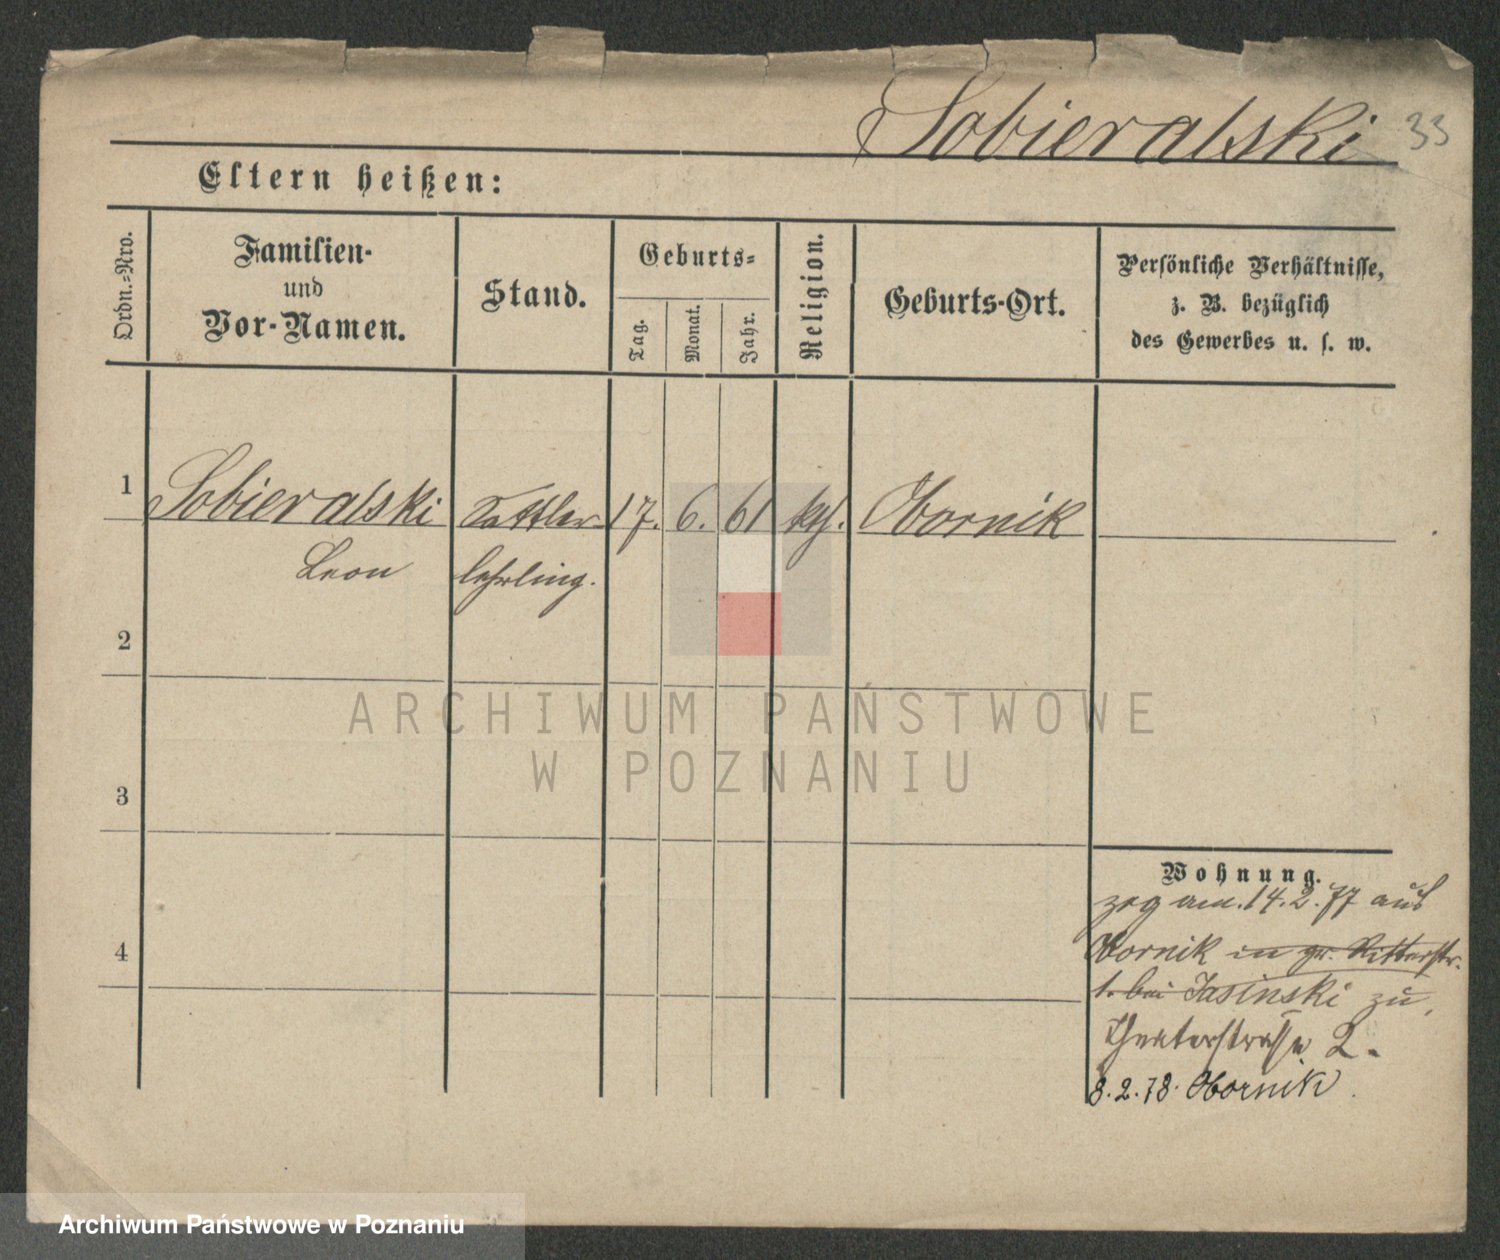 Sobieralski 33
Eltern heißen:
Ordn.=Nro.
Familien-
und
Vor-Namen.
Stand.
Geburts=
Tag.
Monat.
Jahr.
Religion.
Geburts-Ort.
Persönliche Verhältnisse,
z. B. bezüglich
des Gewerbes u. s. w.
1 Sobieralski Sattler 17. 6. 61 kth. Obornik
Leon lehrling.
2
3
4
Wohnung.
zog am 14.2.77 aus
Obornik in gr. Ritterstr.
1. bei Jasinski zu,
Theaterstrasse 2.
8.2.78. Obornik.
ARCHIWUM PAŃSTWOWE
W POZNANIU
Archiwum Państwowe w Poznaniu